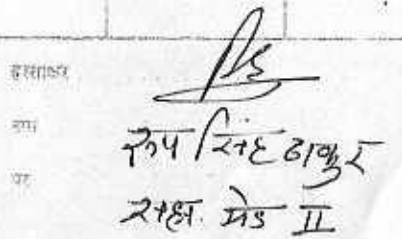 हस्ताक्षर
नाम रूप सिंह ठाकुर
पद सहा. ग्रेड II